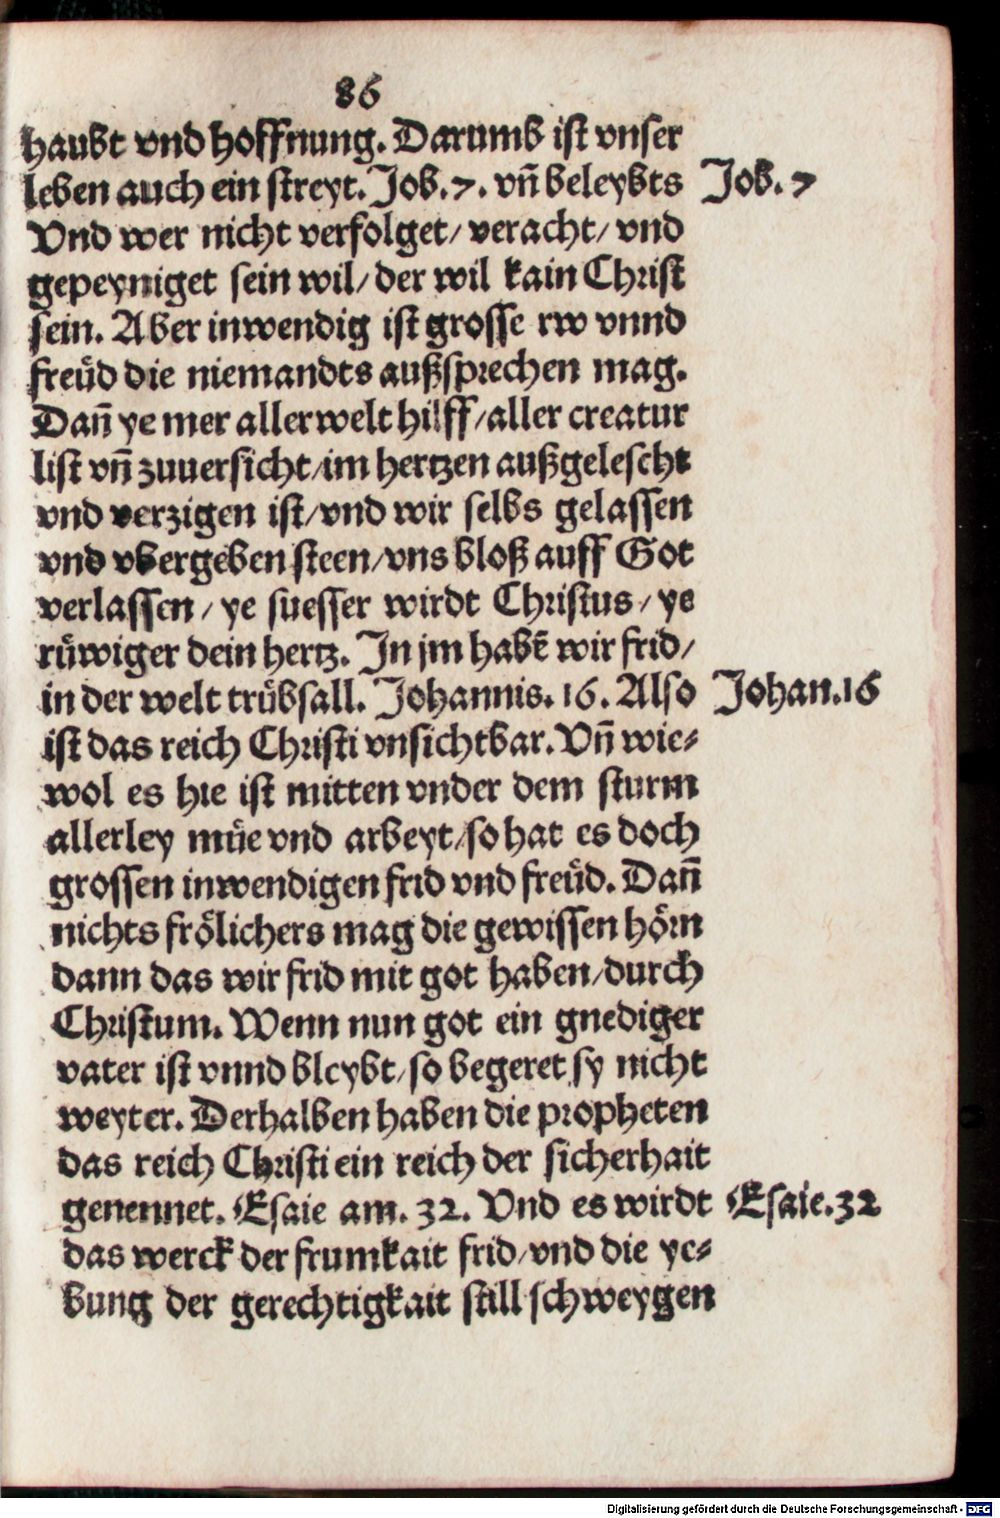 86
haubt vnd hoffnung. Darumb ist vnser
leben auch ein streyt. Job. 7. vn̄ beleybts Job. 7
Vnd wer nicht verfolget/ veracht/ vnd
gepeyniget sein wil/ der wil kain Christ
sein. Aber inwendig ist grosse rw vnnd
freüd die niemandts außsprechen mag.
Dan̄ ye mer aller welt hilff/ aller creatur
list vn̄ zuuersicht/ im hertzen außgelescht
vnd verzigen ist/ vnd wir selbs gelassen
vnd vbergeben steen/ vns bloß auff Got
verlassen/ ye suesser wirdt Christus/ ye
rüwiger dein hertz. In jm habē wir frid/
in der welt trübsall. Johannis. 16. Also Johan. 16
ist das reich Christi vnsichtbar. Vn̄ wie⸗
wol es hie ist mitten vnder dem sturm
allerley müe vnd arbeyt/ so hat es doch
grossen inwendigen frid vnd freüd. Dan̄
nichts frölichers mag die gewissen hörn
dann das wir frid mit got haben/ durch
Christum. Wenn nun got ein gnediger
vater ist vnnd bleybt/ so begeret sy nicht
weyter. Derhalben haben die propheten
das reich Christi ein reich der sicherhait
genennet. Esaie am. 32. Vnd es wirdt Esaie. 32
das werck der frumkait frid/ vnd die ye⸗
bung der gerechtigkait still schweygen
Digitalisierung gefördert durch die Deutsche Forschungsgemeinschaft - DFG